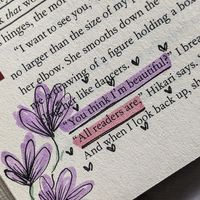 that
hinges, the mor
"I want to see you,"
no larger than the size of my
her elbow. She smooths down the
drawing of a figure holding a box
like dangers.
"You think I'm beautiful?" I brea
"All readers are," Hikari says.
And when I look back up, sh